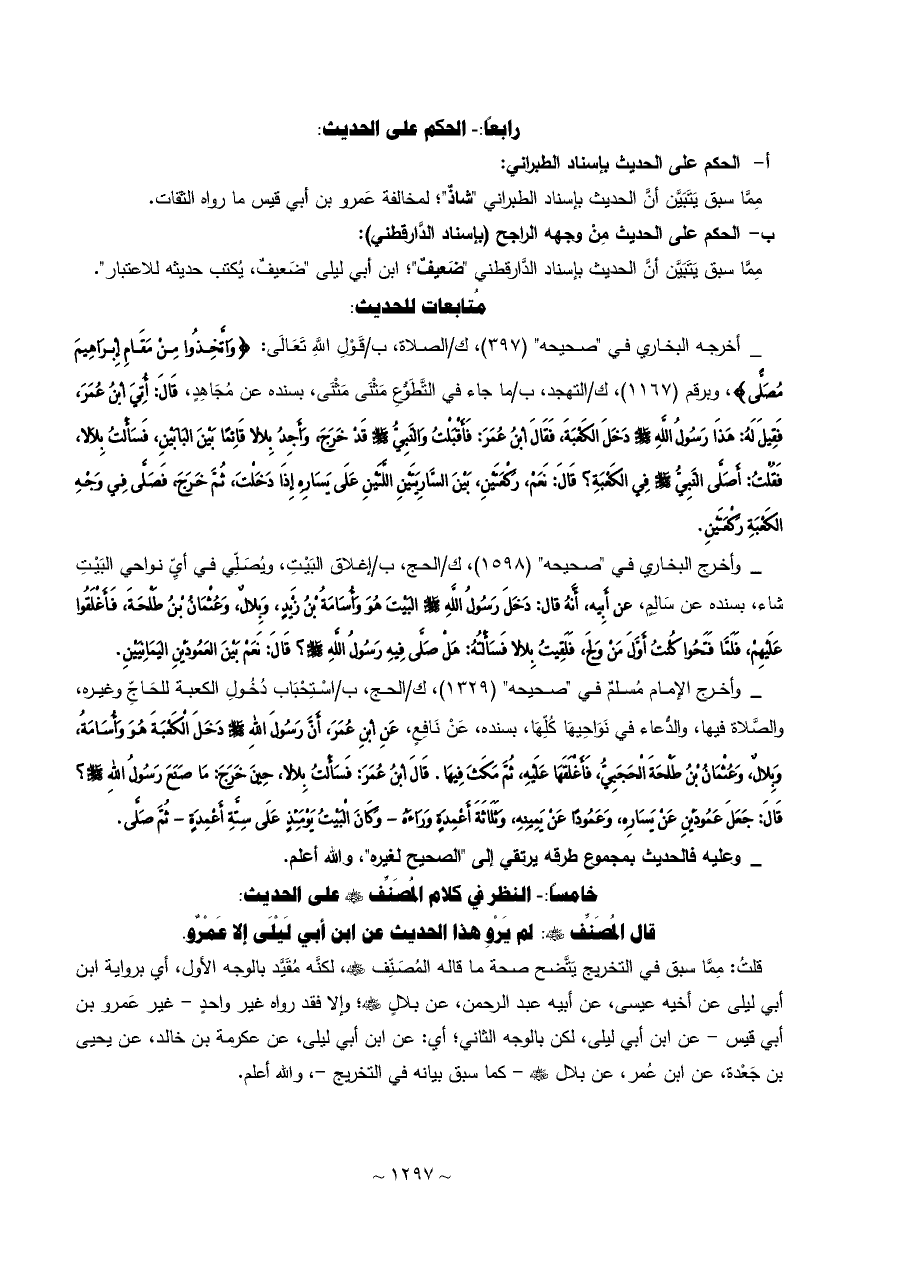 رابعًا:- الحكم على الحديث:
أ- الحكم على الحديث بإسناد الطبراني:
مِمَّا سبق يَتَبَيَّن أنَّ الحديث بإسناد الطبراني "شاذٌ"؛ لمخالفة عَمرو بن أبي قيس ما رواه الثقات.
ب- الحكم على الحديث مِنْ وجهه الراجح (بإسناد الدَّارقطني):
مِمَّا سبق يَتَبَيَّن أنَّ الحديث بإسناد الدَّارقطني "ضَعيفٌ"؛ ابن أبي ليلى "ضَعيفٌ، يُكتب حديثه للاعتبار".
مُتابعات للحديث:
_ أخرجه البخاري في "صحيحه" (٣٩٧)، ك/الصلاة، ب/قَوْلِ اللَّهِ تَعَالَى: ﴿وَاتَّخِذُوا مِنْ مَقَامِ إِبْرَاهِيمَ
مُصَلًّى﴾، وبرقم (١١٦٧)، ك/التهجد، ب/ما جاء في التَّطَوُّعِ مَثْنَى مَثْنَى، بسنده عن مُجَاهِدٍ، قَالَ: أُتِيَ ابْنُ عُمَرَ،
فَقِيلَ لَهُ: هَذَا رَسُولُ اللَّهِ ﷺ دَخَلَ الكَعْبَةَ، فَقَالَ ابْنُ عُمَرَ: فَأَقْبَلْتُ وَالنَّبِيُّ ﷺ قَدْ خَرَجَ، وَأَجِدُ بِلاَلا قَائِمًا بَيْنَ البَابَيْنِ، فَسَأَلْتُ بِلاَلا،
فَقُلْتُ: أَصَلَّى النَّبِيُّ ﷺ فِي الكَعْبَةِ؟ قَالَ: نَعَمْ، رَكْعَتَيْنِ، بَيْنَ السَّارِيَتَيْنِ اللَّتَيْنِ عَلَى يَسَارِهِ إِذَا دَخَلْتَ، ثُمَّ خَرَجَ، فَصَلَّى فِي وَجْهِ
الكَعْبَةِ رَكْعَتَيْنِ.
_ وأخرج البخاري في "صحيحه" (١٥٩٨)، ك/الحج، ب/إغلاق البَيْتِ، ويُصَلِّي في أيِّ نواحي البَيْتِ
شاء، بسنده عن سَالِمٍ، عن أَبِيه، أَنَّهُ قال: دَخَلَ رَسُولُ اللَّهِ ﷺ البَيْتَ هُوَ وَأُسَامَةُ بْنُ زَيْدٍ، وَبِلالٌ، وَعُثْمَانُ بْنُ طَلْحَةَ، فَأَغْلَقُوا
عَلَيْهِمْ، فَلَمَّا فَتَحُوا كُنْتُ أَوَّلَ مَنْ وَلَجَ، فَلَقِيتُ بِلالا فَسَأَلْتُهُ: هَلْ صَلَّى فِيهِ رَسُولُ اللَّهِ ﷺ؟ قَالَ: نَعَمْ بَيْنَ العَمُودَيْنِ اليَمَانِيَيْنِ.
_ وأخرج الإمام مُسلمٌ في "صحيحه" (١٣٢٩)، ك/الحج، ب/اسْتِحْبَاب دُخُولِ الكعبة للحَاجِّ وغيره،
والصَّلاة فيها، والدُّعاء في نَوَاحِيهَا كُلِّهَا، بسنده، عَنْ نَافِعٍ، عَنِ ابْنِ عُمَرَ، أَنَّ رَسُولَ اللهِ ﷺ دَخَلَ الْكَعْبَةَ هُوَ وَأُسَامَةُ،
وَبِلالٌ، وَعُثْمَانُ بْنُ طَلْحَةَ الْحَجَبِيُّ، فَأَغْلَقَهَا عَلَيْهِ، ثُمَّ مَكَثَ فِيهَا. قَالَ ابْنُ عُمَرَ: فَسَأَلْتُ بِلالا، حِينَ خَرَجَ: مَا صَنَعَ رَسُولُ اللهِ ﷺ؟
قَالَ: جَعَلَ عَمُودَيْنِ عَنْ يَسَارِهِ، وَعَمُودًا عَنْ يَمِينِهِ، وَثَلَاثَةَ أَعْمِدَةٍ وَرَاءَهُ – وَكَانَ الْبَيْتُ يَوْمَئِذٍ عَلَى سِتَّةِ أَعْمِدَةٍ – ثُمَّ صَلَّى.
_ وعليه فالحديث بمجموع طرقه يرتقي إلى "الصحيح لغيره"، والله أعلم.
خامسًا:- النظر في كلام المُصَنِّف على الحديث:
قال المُصَنِّف: لم يَرْوِ هذا الحديث عن ابن أبي لَيْلَى إلا عَمْرٌو.
قلتُ: مِمَّا سبق في التخريج يَتَّضح صحة ما قاله المُصَنِّف، لكنَّه مُقَيَّد بالوجه الأول، أي برواية ابن
أبي ليلى عن أخيه عيسى، عن أبيه عبد الرحمن، عن بلالٍ؛ وإلا فقد رواه غير واحدٍ – غير عَمرو بن
أبي قيس – عن ابن أبي ليلى، لكن بالوجه الثاني؛ أي: عن ابن أبي ليلى، عن عكرمة بن خالد، عن يحيى
بن جَعْدة، عن ابن عُمر، عن بلال – كما سبق بيانه في التخريج –، والله أعلم.
~ ١٢٩٧ ~